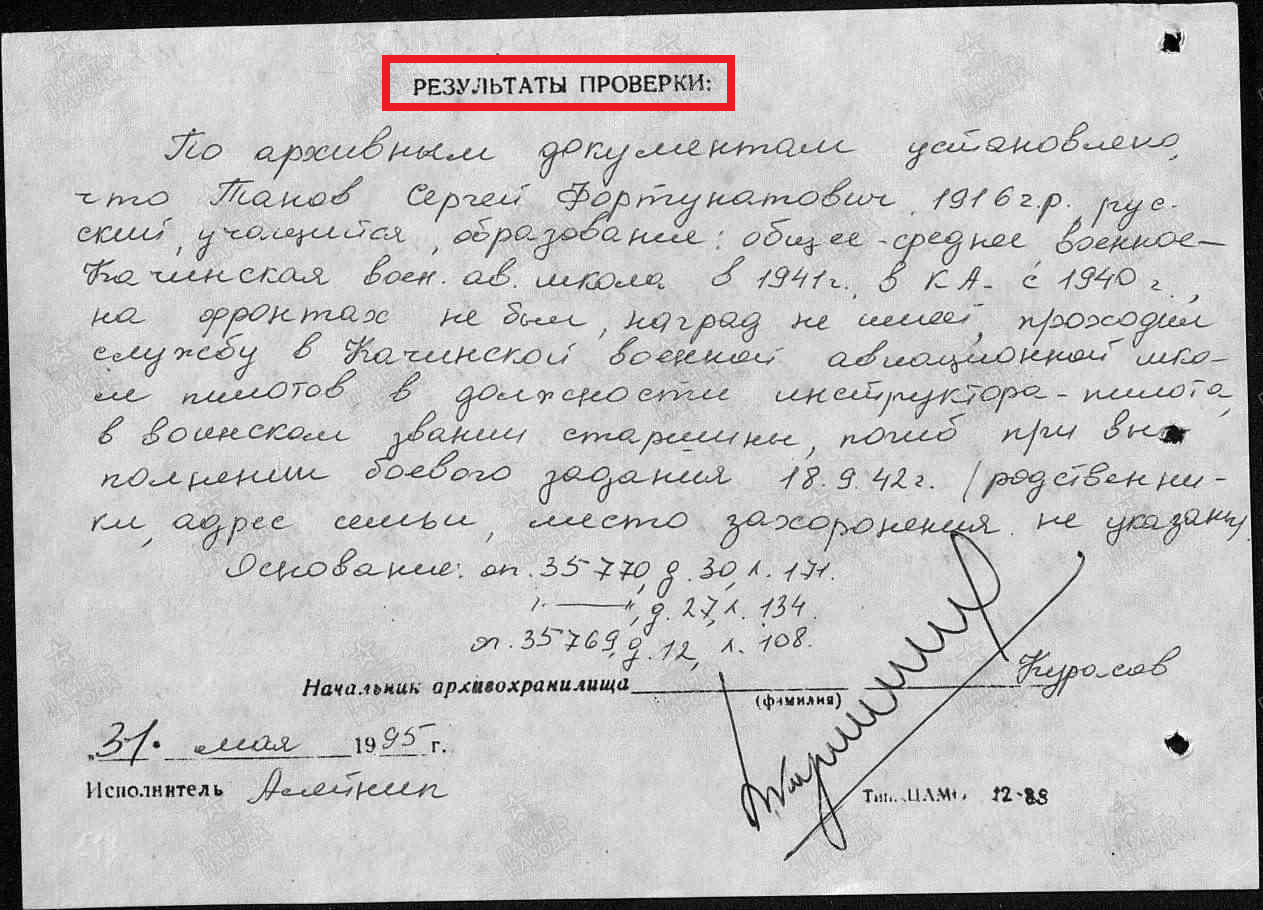 РЕЗУЛЬТАТЫ ПРОВЕРКИ:
По архивным документам установлено,
что Танов Сергей Фортунатович, 1916 г.р., рус-
ский, учащийся, образование: общее-среднее военное-
Качинская воен. ав. школа в 1941г., в КА- с 1940 г.,
на фронтах не был, наград не имеет, проходил
службу в Качинской военной авиационной шко-
ле пилотов в должности инструктора-пилота,
в воинском звании старшины, погиб при вы-
полнении боевого задания 18.9.42г. /родственни-
ки, адрес семьи, место захоронения не указаны.
Основание: оп. 35770, д. 30, л. 171.
"——", д. 27, л. 134.
оп. 35769, д. 12, л. 108.
Начальник архивохранилища Курасов
(фамилия)
„31. мая 1995 г.
Исполнитель Алейник
Тип. ЦАМО 12-88